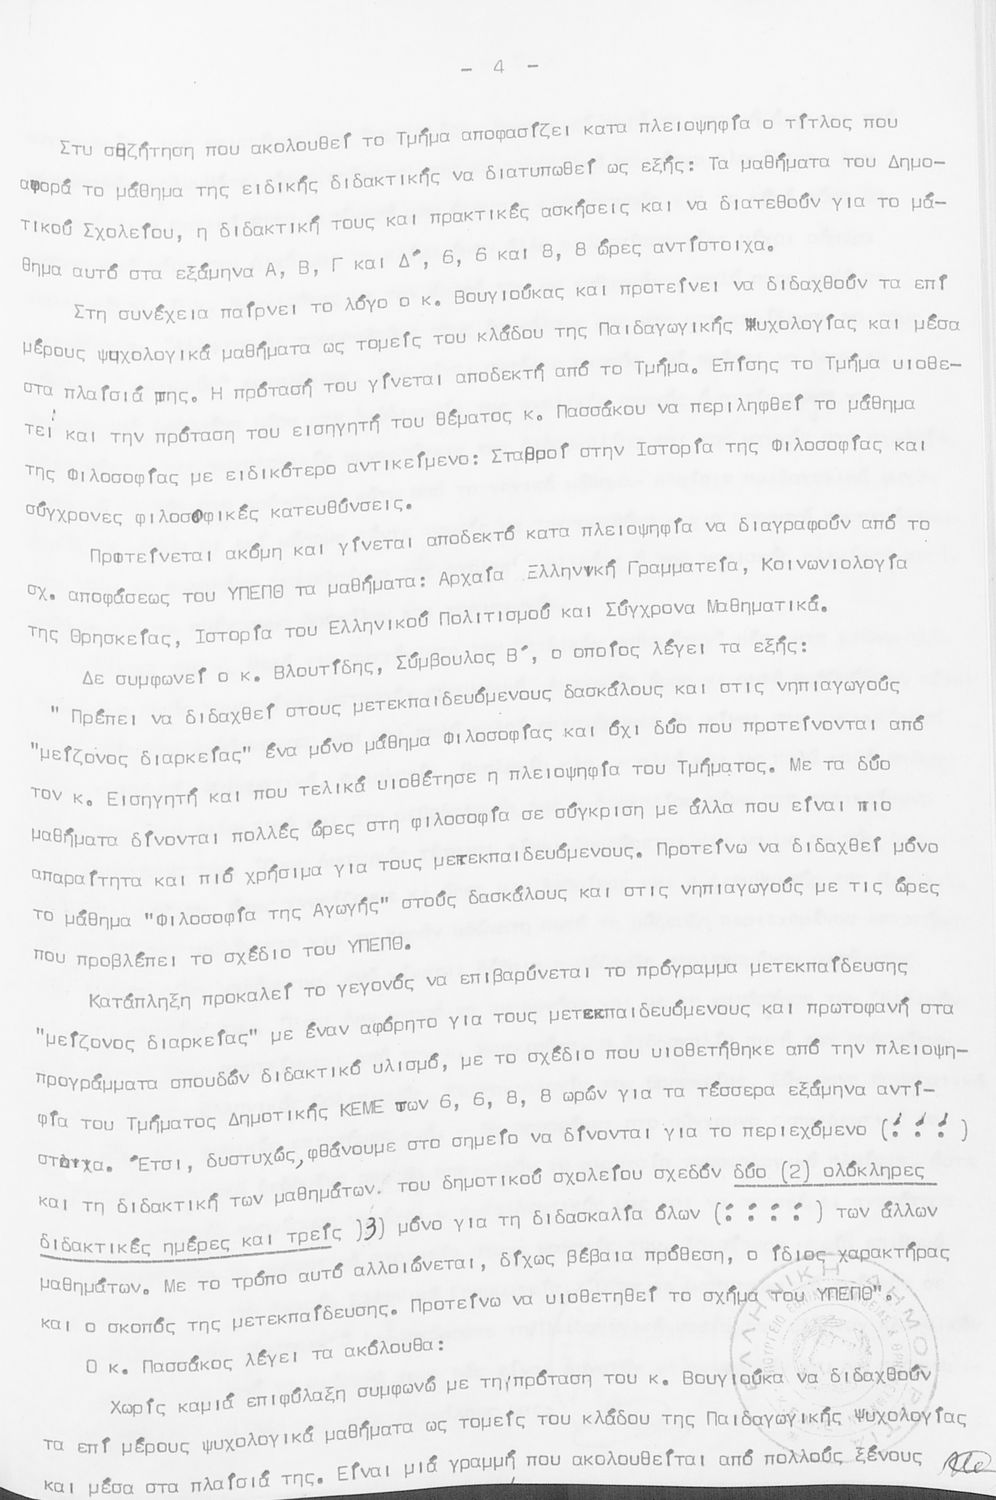 - 4 -
Στυ συζήτηση που ακολουθεί το Τμήμα αποφασίζει κατα πλειοψηφία ο τίτλος που
αφορά το μάθημα της ειδικής διδακτικής να διατυπωθεί ως εξής: Τα μαθήματα του Δημο-
τικού Σχολείου, η διδακτική τους και πρακτικές ασκήσεις και να διατεθούν για το μά-
θημα αυτό στα εξάμηνα Α, Β, Γ και Δ´, 6, 6 και 8, 8 ώρες αντίστοιχα.
Στη συνέχεια παίρνει το λόγο ο κ. Βουγιούκας και προτείνει να διδαχθούν τα επί
μέρους ψυχολογικά μαθήματα ως τομείς του κλάδου της Παιδαγωγικής Ψυχολογίας και μέσα
στα πλαίσιά της. Η πρότασή του γίνεται αποδεκτή από το Τμήμα. Επίσης το Τμήμα υιοθε-
τεί και την πρόταση του εισηγητή του θέματος κ. Πασσάκου να περιληφθεί το μάθημα
της Φιλοσοφίας με ειδικότερο αντικείμενο: Σταθμοί στην Ιστορία της Φιλοσοφίας και
σύγχρονες φιλοσοφικές κατευθύνσεις.
Προτείνεται ακόμη και γίνεται αποδεκτό κατα πλειοψηφία να διαγραφούν από το
σχ. αποφάσεως του ΥΠΕΠΘ τα μαθήματα: Αρχαία Ελληνική Γραμματεία, Κοινωνιολογία
της Θρησκείας, Ιστορία του Ελληνικού Πολιτισμού και Σύγχρονα Μαθηματικά.
Δε συμφωνεί ο κ. Βλουτίδης, Σύμβουλος Β´, ο οποίος λέγει τα εξής:
" Πρέπει να διδαχθεί στους μετεκπαιδευόμενους δασκάλους και στις νηπιαγωγούς
"μείζονος διαρκείας" ένα μόνο μάθημα Φιλοσοφίας και όχι δύο που προτείνονται από
τον κ. Εισηγητή και που τελικά υιοθέτησε η πλειοψηφία του Τμήματος. Με τα δύο
μαθήματα δίνονται πολλές ώρες στη φιλοσοφία σε σύγκριση με άλλα που είναι πιο
απαραίτητα και πιό χρήσιμα για τους μετεκπαιδευόμενους. Προτείνω να διδαχθεί μόνο
το μάθημα "Φιλοσοφία της Αγωγής" στούς δασκάλους και στις νηπιαγωγούς με τις ώρες
που προβλέπει το σχέδιο του ΥΠΕΠΘ.
Κατάπληξη προκαλεί το γεγονός να επιβαρύνεται το πρόγραμμα μετεκπαίδευσης
"μείζονος διαρκείας" με έναν αφόρητο για τους μετεκπαιδευόμενους και πρωτοφανή στα
προγράμματα σπουδών διδακτικό υλισμό, με το σχέδιο που υιοθετήθηκε από την πλειοψη-
φία του Τμήματος Δημοτικής ΚΕΜΕ των 6, 6, 8, 8 ωρών για τα τέσσερα εξάμηνα αντί-
στοιχα. Έτσι, δυστυχώς, φθάνουμε στο σημείο να δίνονται για το περιεχόμενο (!!!)
και τη διδακτική των μαθημάτων. του δημοτικού σχολείου σχεδόν δύο (2) ολόκληρες
διδακτικές ημέρες και τρείς )3) μόνο για τη διδασκαλία όλων (::::) των άλλων
μαθημάτων. Με το τρόπο αυτό αλλοιώνεται, δίχως βέβαια πρόθεση, ο ίδιος χαρακτήρας
και ο σκοπός της μετεκπαίδευσης. Προτείνω να υιοθετηθεί το σχήμα του ΥΠΕΠΘ".
Ο κ. Πασσάκος λέγει τα ακόλουθα:
Χωρίς καμιά επιφύλαξη συμφωνώ με τη πρόταση του κ. Βουγιούκα να διδαχθούν
τα επί μέρους ψυχολογικά μαθήματα ως τομείς του κλάδου της Παιδαγωγικής Ψυχολογίας
και μέσα στα πλαίσιά της. Είναι μιά γραμμή που ακολουθείται από πολλούς ξένους
ΕΛΛΗΝΙΚΗ ΔΗΜΟΚΡΑΤΙΑ